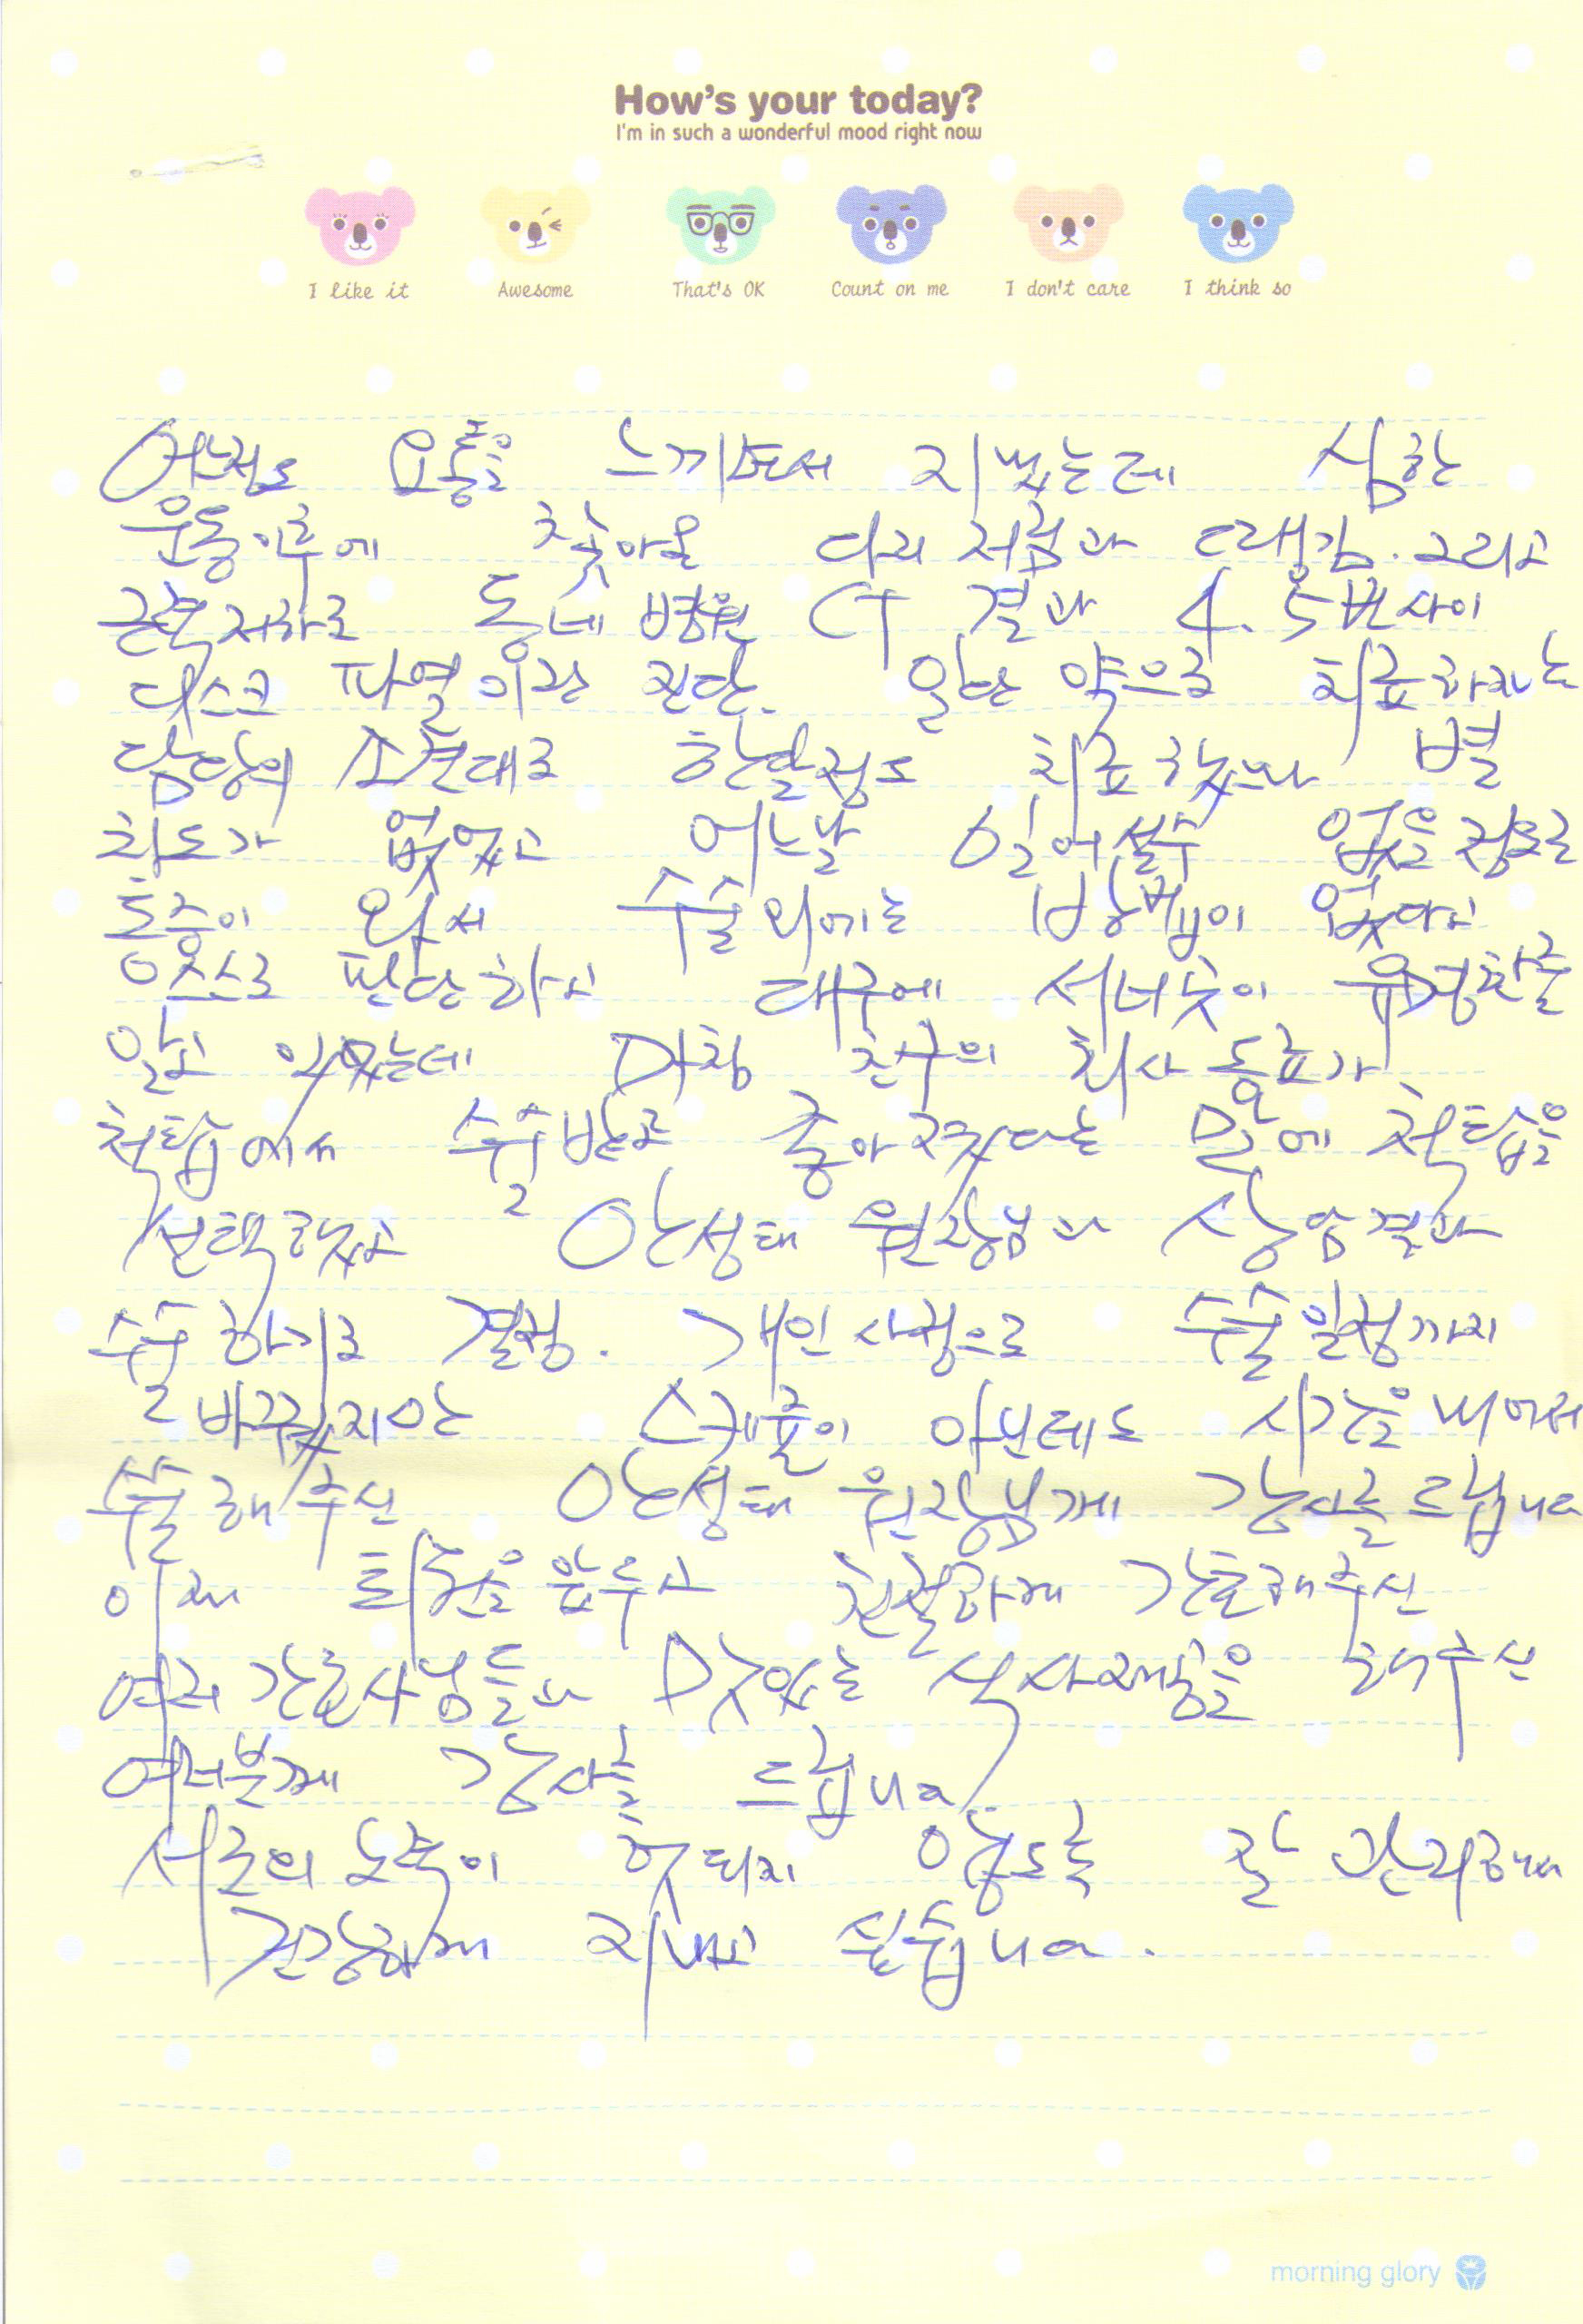 How's your today?
I'm in such a wonderful mood right now
I like it Awesome That's OK Count on me I don't care I think so
어느정도 요통을 느끼면서 지냈는데 심한
운동이후에 찾아온 다리 저림과 땡김. 그리고
근력저하로 동네 병원 CT 결과 4. 5번사이
디스크 파열이란 진단. 일단 약으로 치료하자는
담당의 소견대로 한달정도 치료했으나 별
차도가 없었고 어느날 일어설수 없을 정도로
통증이 와서 수술외에는 방법이 없다고
스스로 판단하고 대구에 서너곳이 유명한줄
알고 있었는데 마침 친구의 회사 동료가
척탑에서 수술받고 좋아졌다는 말에 척탑을
선택했고 안성태 원장님과 상담결과
수술하기로 결정. 개인 사정으로 수술일정까지
바꿔지는 스케쥴이 아닌데도 시간을 내어서
수술해주신 안성태 원장님께 감사를 드립니다
이제 퇴원을 앞두고 친절하게 간호해주신
여러 간호사님들과 맛있는 식사제공을 해주신
여러분께 감사를 드립니다
서로의 노력이 헛되지 않도록 잘 관리해서
건강하게 지내고 싶습니다.
morning glory